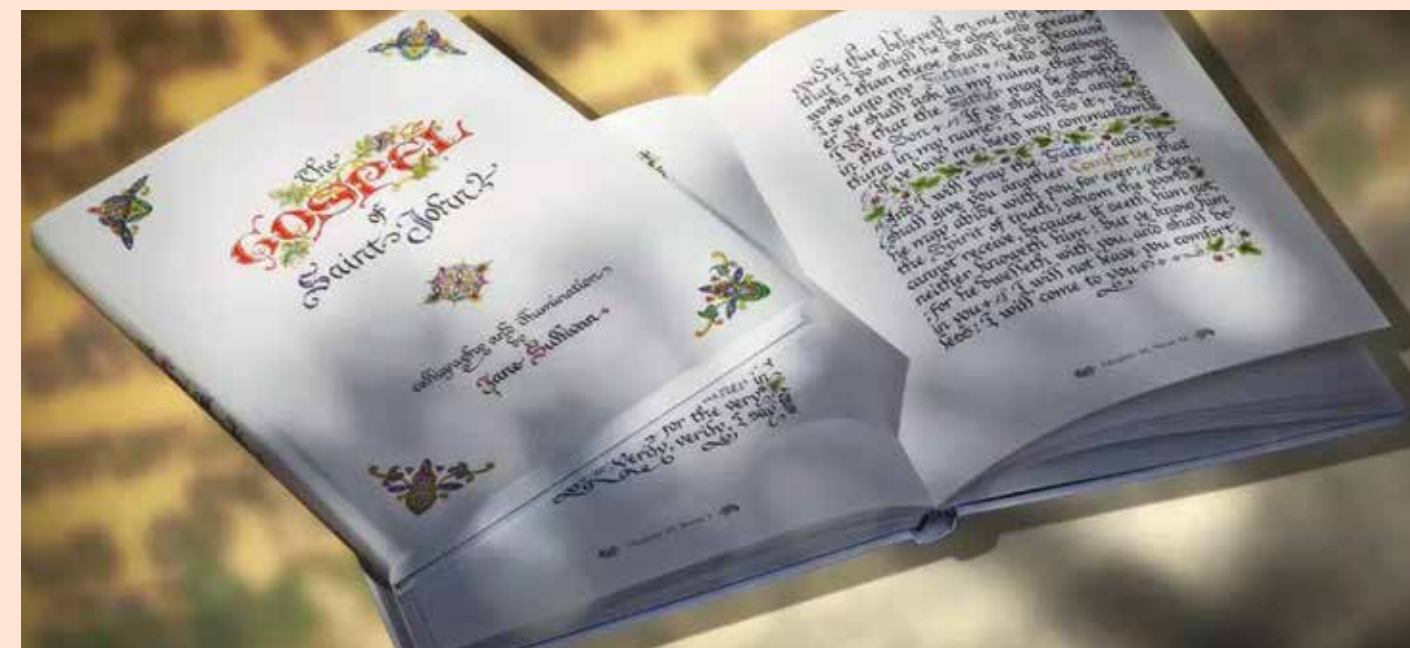 the
GOSPEL
of
Saint John
calligraphy and illumination
Jane Sullivan
for the very
Verily, verily, I say
He that believeth on me, the
that I do shall he do also and greater
works than these shall he do because
I go unto my Father. And whatsoever
ye shall ask in my name that will
I do that the Father may be glorified
in the Son. If ye shall ask any
thing in my name, I will do it.
If ye love me keep my commandments
And I will pray the Father and he
shall give you another Comforter that
he may abide with you for ever; Even
the Spirit of truth, whom the world
cannot receive, because it seeth him not,
neither knoweth him: but ye know him
for he dwelleth with you and shall be
in you. I will not leave you comfort
less: I will come to you